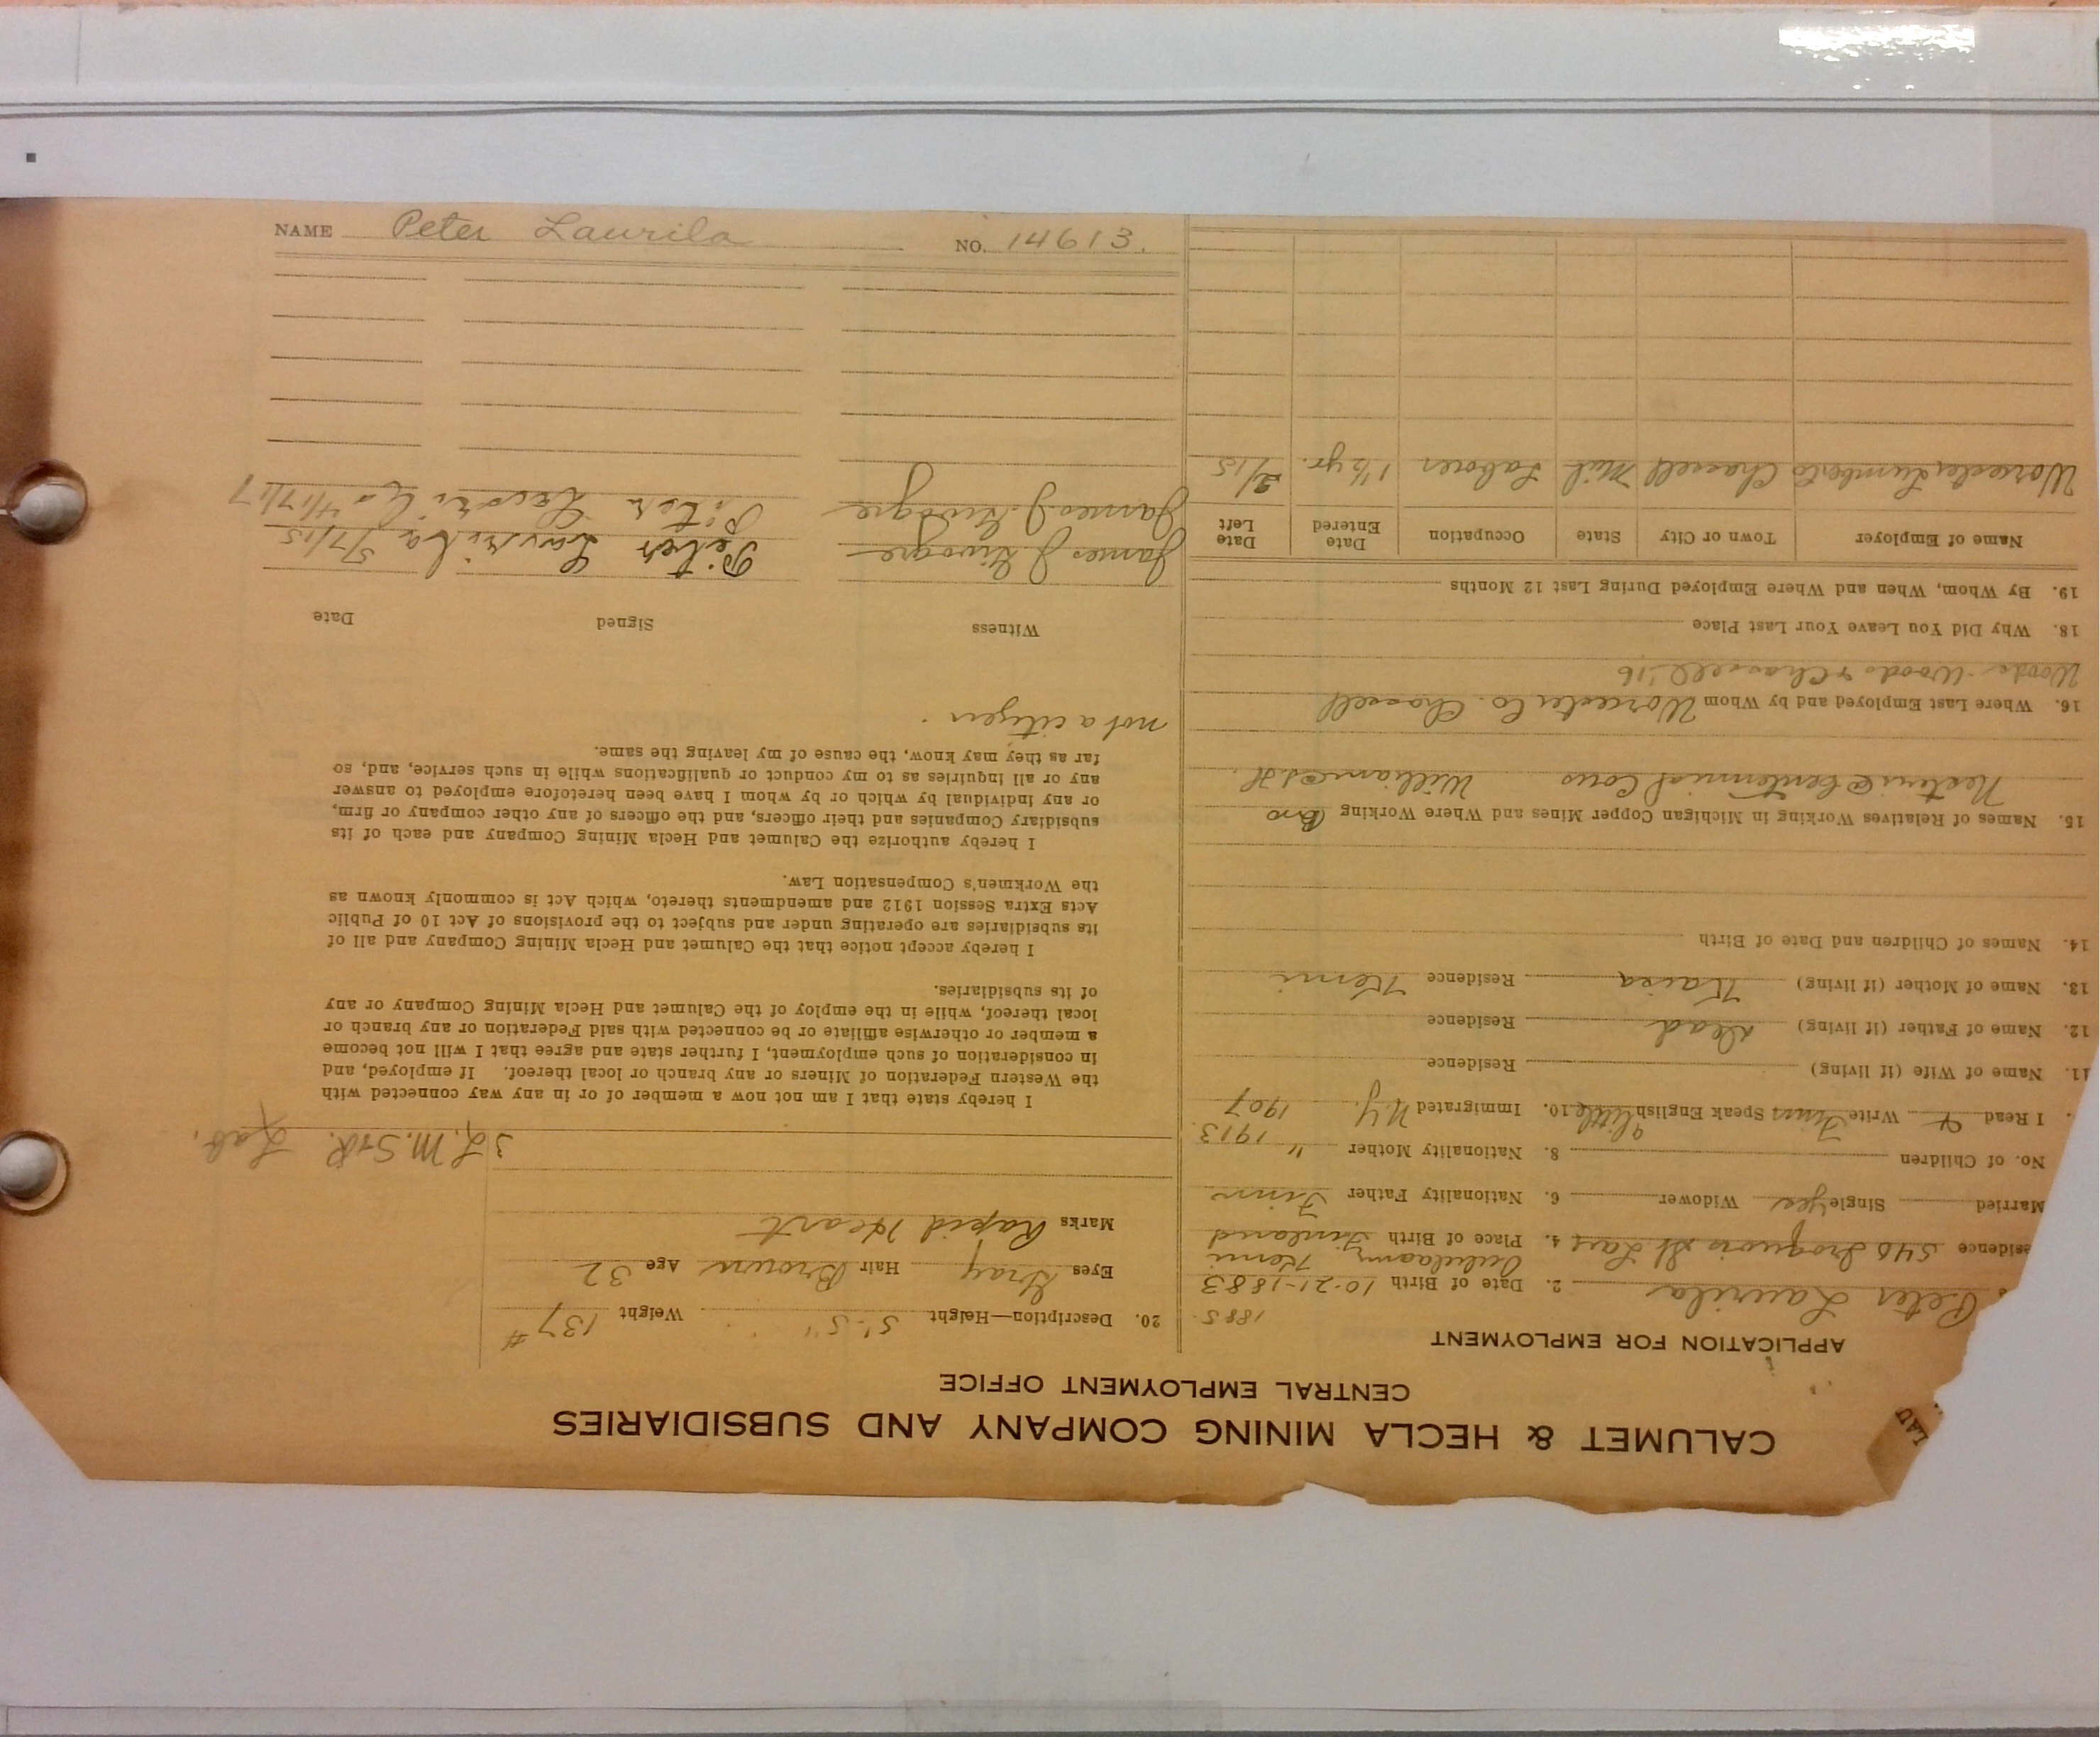 CALUMET & HECLA MINING COMPANY AND SUBSIDIARIES
CENTRAL EMPLOYMENT OFFICE
APPLICATION FOR EMPLOYMENT
LAU
1885
Peter Laurila 2. Date of Birth 10-21-1883
Kemi
esidence 546 Iroquois St Laur 4. Place of Birth Finland
Married Single yes Widower 6. Nationality Father Finn
No. of Children 8. Nationality Mother " 1913
I Read & Write Finn Speak English a little 10. Immigrated N.Y. 1907
11. Name of Wife (if living) Residence
12. Name of Father (if living) Dead Residence
13. Name of Mother (if living) Kaisa Residence Kemi
14. Names of Children and Date of Birth
15. Names of Relatives Working in Michigan Copper Mines and Where Working Bro
Nestori @ Centennial Cous William @ I.R.
16. Where Last Employed and by Whom Worcester Co. Chassell
Woods & Chassell '16
18. Why Did You Leave Your Last Place
19. By Whom, When and Where Employed During Last 12 Months
Name of Employer Town or City State Occupation Date Entered Date Left
Worcester Lumber Co Chassell Mich Laborer 1½ yr. 2/15
20. Description—Height 5'-5" Weight 137#
Eyes Gray Hair Brown Age 32
Marks Rapid Heart
3 L.M.S&R. Lab.
I hereby state that I am not now a member of or in any way connected with
the Western Federation of Miners or any branch or local thereof. If employed, and
in consideration of such employment, I further state and agree that I will not become
a member or otherwise affiliate or be connected with said Federation or any branch or
local thereof, while in the employ of the Calumet and Hecla Mining Company or any
of its subsidiaries.
I hereby accept notice that the Calumet and Hecla Mining Company and all of
its subsidiaries are operating under and subject to the provisions of Act 10 of Public
Acts Extra Session 1912 and amendments thereto, which Act is commonly known as
the Workmen's Compensation Law.
I hereby authorize the Calumet and Hecla Mining Company and each of its
subsidiary Companies and their officers, and the officers of any other company or firm,
or any individual by which or by whom I have been heretofore employed to answer
any or all inquiries as to my conduct or qualifications while in such service, and, so
far as they may know, the cause of my leaving the same.
not a citizen.
Witness Signed Date
James J. Peter Laurila 5/7/15
James J. Peter Laurila 4/17/17
NAME Peter Laurila NO. 14613.